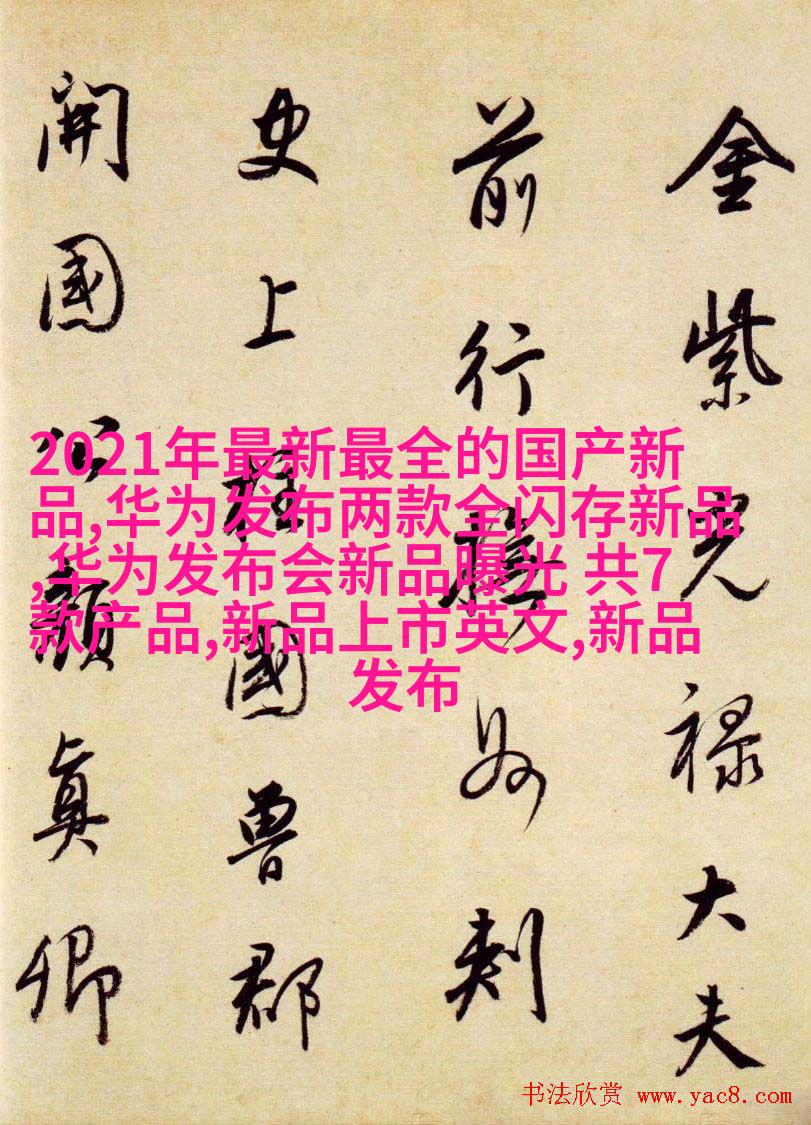 金紫光禄大夫
前行撫州刺
史上柱國魯郡
開國公顏真卿
2021年最新最全的国产新
品,华为发布两款全闪存新品
,华为发布会新品曝光 共7
款产品,新品上市英文,新品
发布
书法欣赏 www.yac8.com